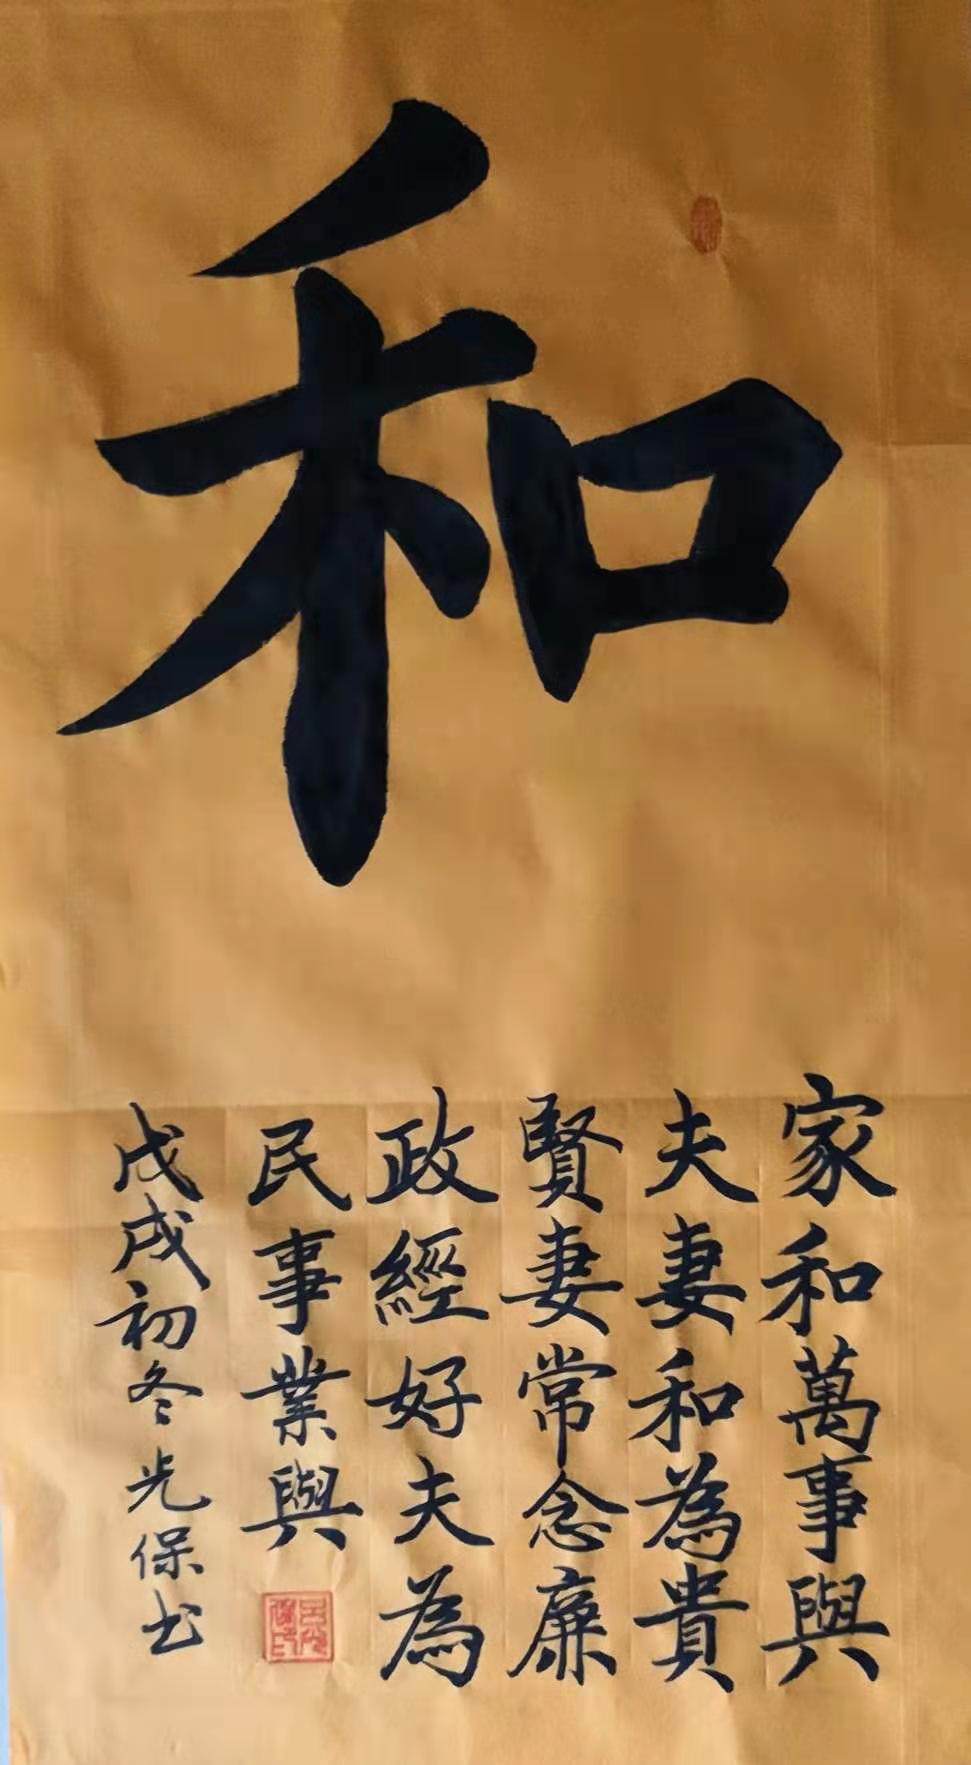 和
家和萬事與
夫妻和為貴
賢妻常念廉
政經好夫為
民事業與
戊戌初冬光保书